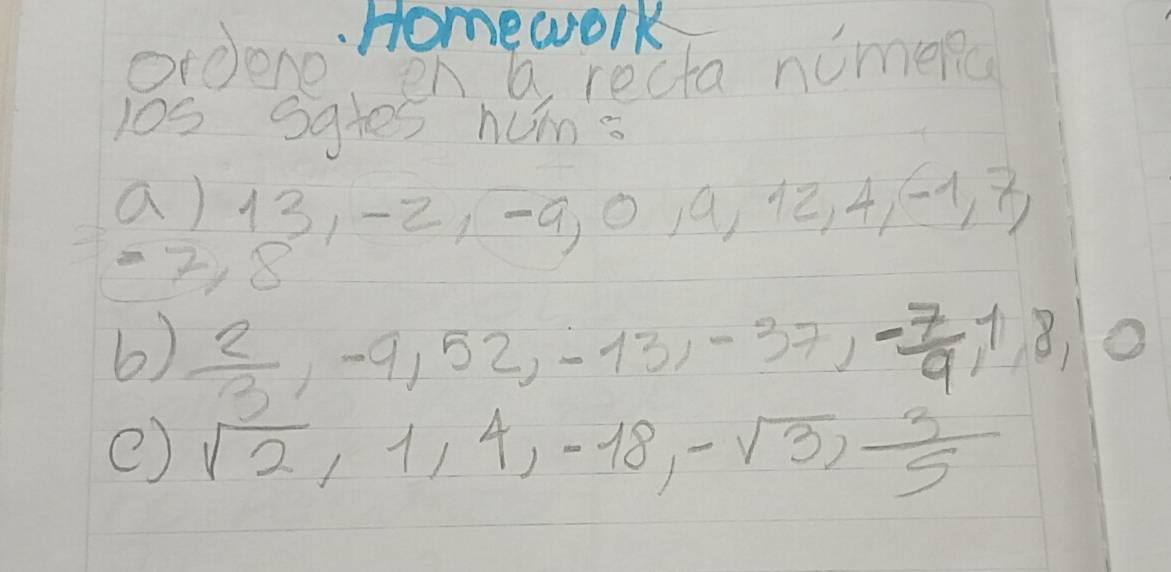 .Homework
ordene en la recta númerica
los sgtes núm:
a) 13, -2, -9, 0, 9, 12, 4, -1, 7,
-7, 8
b) 2/3, -9, 52, -13, -37, -7/9, 1, 8, 0
c) √2, 1, 4, -18, -√3, 3/5